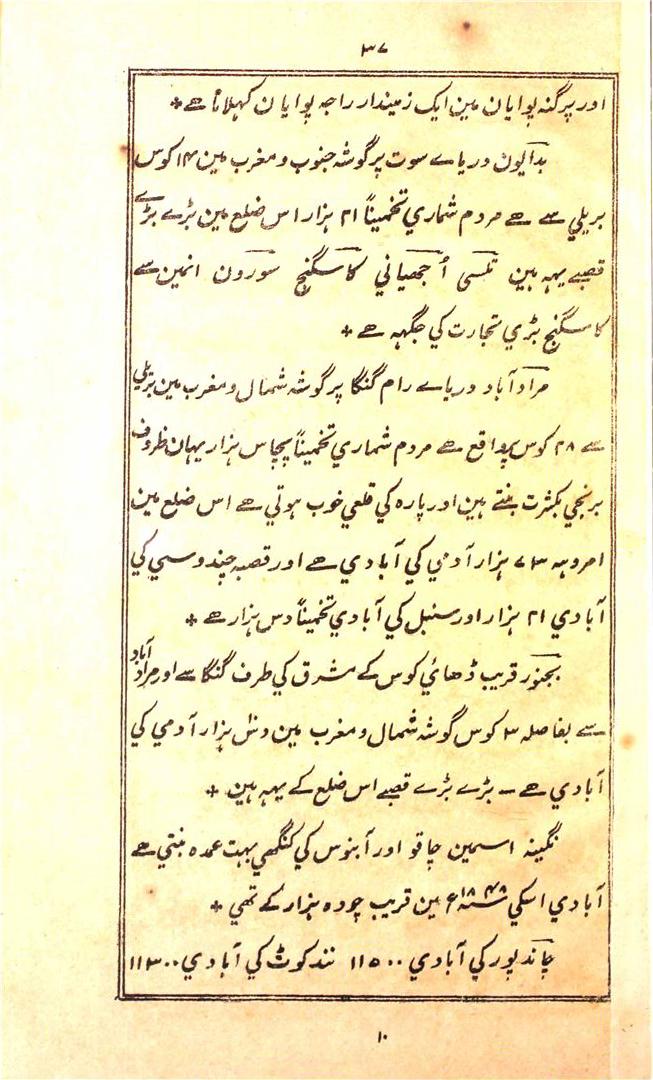 ۳۷
اور پرگنہ پوایان مین ایک زمیندار راجہ پوایان کہلاتا ہے *
بدایون دریاے سوت پر گوشہ جنوب و مغرب مین ۱۴ کوس
بریلي سے ہے مردم شماري تخمیناً ۲۱ ہزار اس ضلع مین بڑے بڑے
قصبے یہہ ہین تلسی اُجھیاني کاسگنج سورون انمین سے
کاسگنج بڑي تجارت کي جگہہ ہے *
مرادآباد دریاے رام گنگا پر گوشہ شمال و مغرب مین بریلي
سے ۲۸ کوس پر واقع ہے مردم شماري تخمیناً پچاس ہزار یہان ظروف
برنجي بکثرت بنتے ہین اور پارہ کي قلعي خوب ہوتي ہے اس ضلع مین
امروہہ ۷۳ ہزار آدمي کي آبادي ہے اور قصبہ چندوسي کي
آبادي ۲۱ ہزار اور سنبل کي آبادي تخمیناً دس ہزار ہے *
بجنور قریب ڈھائي کوس کے مشرق کي طرف گنگا سے اور مرادآباد
سے بفاصلہ ۳ کوس گوشہ شمال و مغرب مین دس ہزار آدمي کي
آبادي ہے — بڑے بڑے قصبے اس ضلع کے یہہ ہین *
نگینہ اسمین چاقو اور آبنوس کي کنگھي بہت عمدہ بنتي ہے
آبادي اسکي سنہ ۱۸۴۸ع مین قریب چودہ ہزار کے تھي *
چاندپور کي آبادي ۱۱۵۰۰ نندکوٹ کي آبادي ۱۱۳۰۰
۱۰